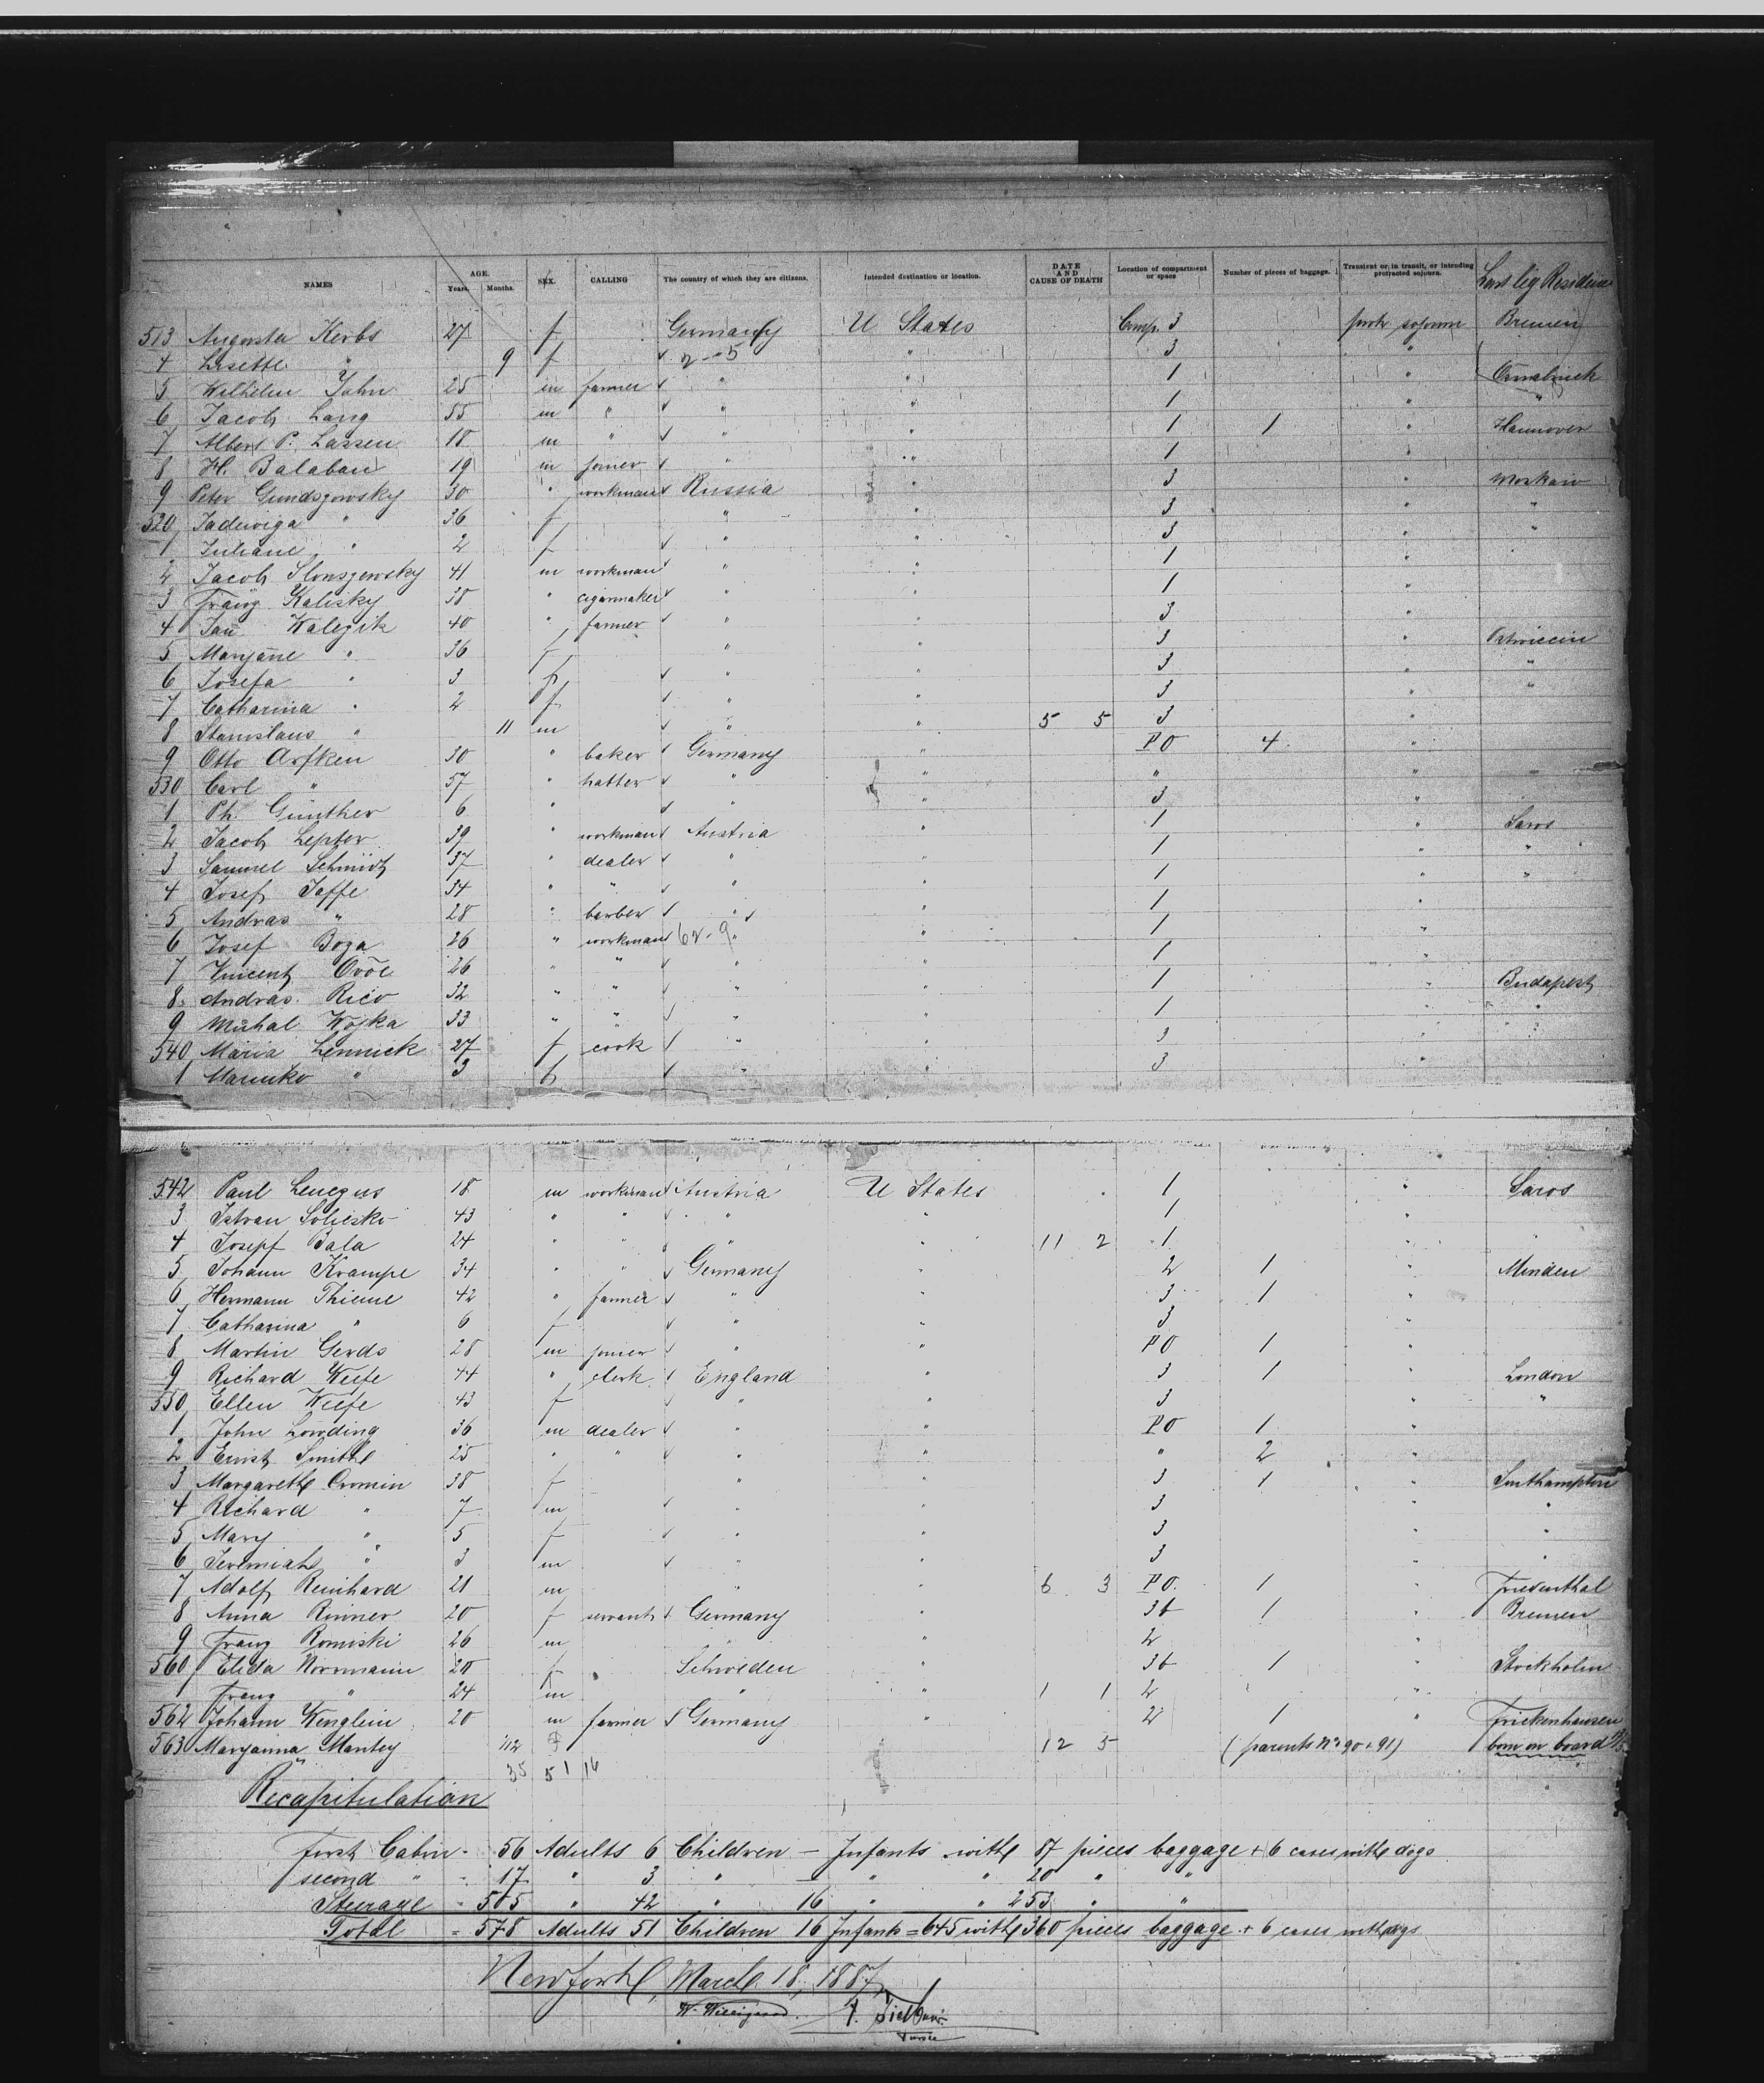 NAMES AGE. Years. Months. SEX. CALLING The country of which they are citizens. Intended destination or location. DATE AND CAUSE OF DEATH Location of compartment or space Number of pieces of baggage. Transient or in transit, or intending protracted sojourn. Last leg Residence
513 Augusta Kerbs 27 f Germany U States Comp. 3 protr sojourn Bremen
4 Lisette " 9 f 2-5 " 3 "
5 Wilhelm John 25 m farmer " " 1 " Osnabruck
6 Jacob Lang 55 m " " " 1 " "
7 Albert P. Lassen 18 m " " " 1 1 " Hannover
8 H. Balaban 19 m joiner " " 1 "
9 Peter Gundszowsky 30 " workman Russia " 3 " Moskau
520 Jadwiga " 36 f " " 3 " "
1 Juliane " 2 f " " 3 " "
2 Jacob Slonszewsky 41 m workman " " 1 "
3 Franz Kalisky 38 " cigarmaker " " 1 "
4 Jan Walezik 40 " farmer " " 3 "
5 Maryane " 36 f " " 3 "
6 Josefa " 3 f " " 3 " "
7 Catharina " 2 f " " 3 " "
8 Stanislaus " 11 m " " 5 5 3 "
9 Otto Arfken 30 " baker Germany " PO 4 "
530 Carl " 57 " hatter " " " "
1 Ph. Günther 6 " " " 3 "
2 Jacob Leptor 39 " workman Austria " 1 " Saros
3 Samuel Schmidt 37 " dealer " " 1 " "
4 Josef Jaffe 34 " " " " 1 " "
5 Andras " 28 " barber " " 1 "
6 Josef Boza 26 " workman 62-9 " " 1 "
7 Vincent 26 " " " " 1 "
8 Andras Rico 32 " " " " 1 " Budapest
9 Mihal Wojka 33 " " " " 1 " "
540 Maria Lennick 27 f cook " " 3 "
1 Marinko " 3 f " " 3 "
542 Paul Lenczus 18 m workman Austria U States 1 " Saros
3 Istvan Soliesko 43 " " " " 1 "
4 Josepf Bala 24 " " " " 11 2 1 " "
5 Johann Krampe 34 " " Germany " 2 1 " Minden
6 Hermann Thieme 42 " farmer " " 3 1 "
7 Catharina " 6 f " " 3 "
8 Martin Gerds 28 m joiner " " PO 1 "
9 Richard Wiefe 44 " clerk England " 3 1 " London
550 Ellen Wiefe 43 f " " 3 " "
1 John Lowding 36 m dealer " " PO 1 "
2 Ernst Smith 25 " " " " " 2 "
3 Margareth Cromin 38 f " " 3 1 " Southampton
4 Richard " 7 m " " 3 " "
5 Mary " 5 f " " 3 " "
6 Jeremiah " 3 m " " 3 " "
7 Adolf Reinhard 21 m " " 6 3 PO. 1 " Friedenthal
8 Anna Rinner 20 f servant Germany " 3b 1 " Bremen
9 Franz Romiski 26 m " " 2 "
560 Elida Norrmann 20 f Schweden " 3b 1 " Stockholm
1 Franz " 24 m " " 1 1 2 "
562 Johann Wenglein 20 m farmer Germany " 2 1 " Frickenhausen
563 Maryanna Mantey 1/12 f 12 5 (parents No 90 + 91) born on board
35 51 16
Recapitulation
first Cabin - 56 Adults 6 Children - Infants with 87 pieces baggage + 6 cases with dogs
second " - 17 " 3 " - " " 20 " "
Steerage - 505 " 42 " 16 " " 253 " "
Total = 578 Adults 51 Children 16 Infants = 645 with 360 pieces baggage + 6 cases with dogs
New York, March 18, 1887
W. Willigerod